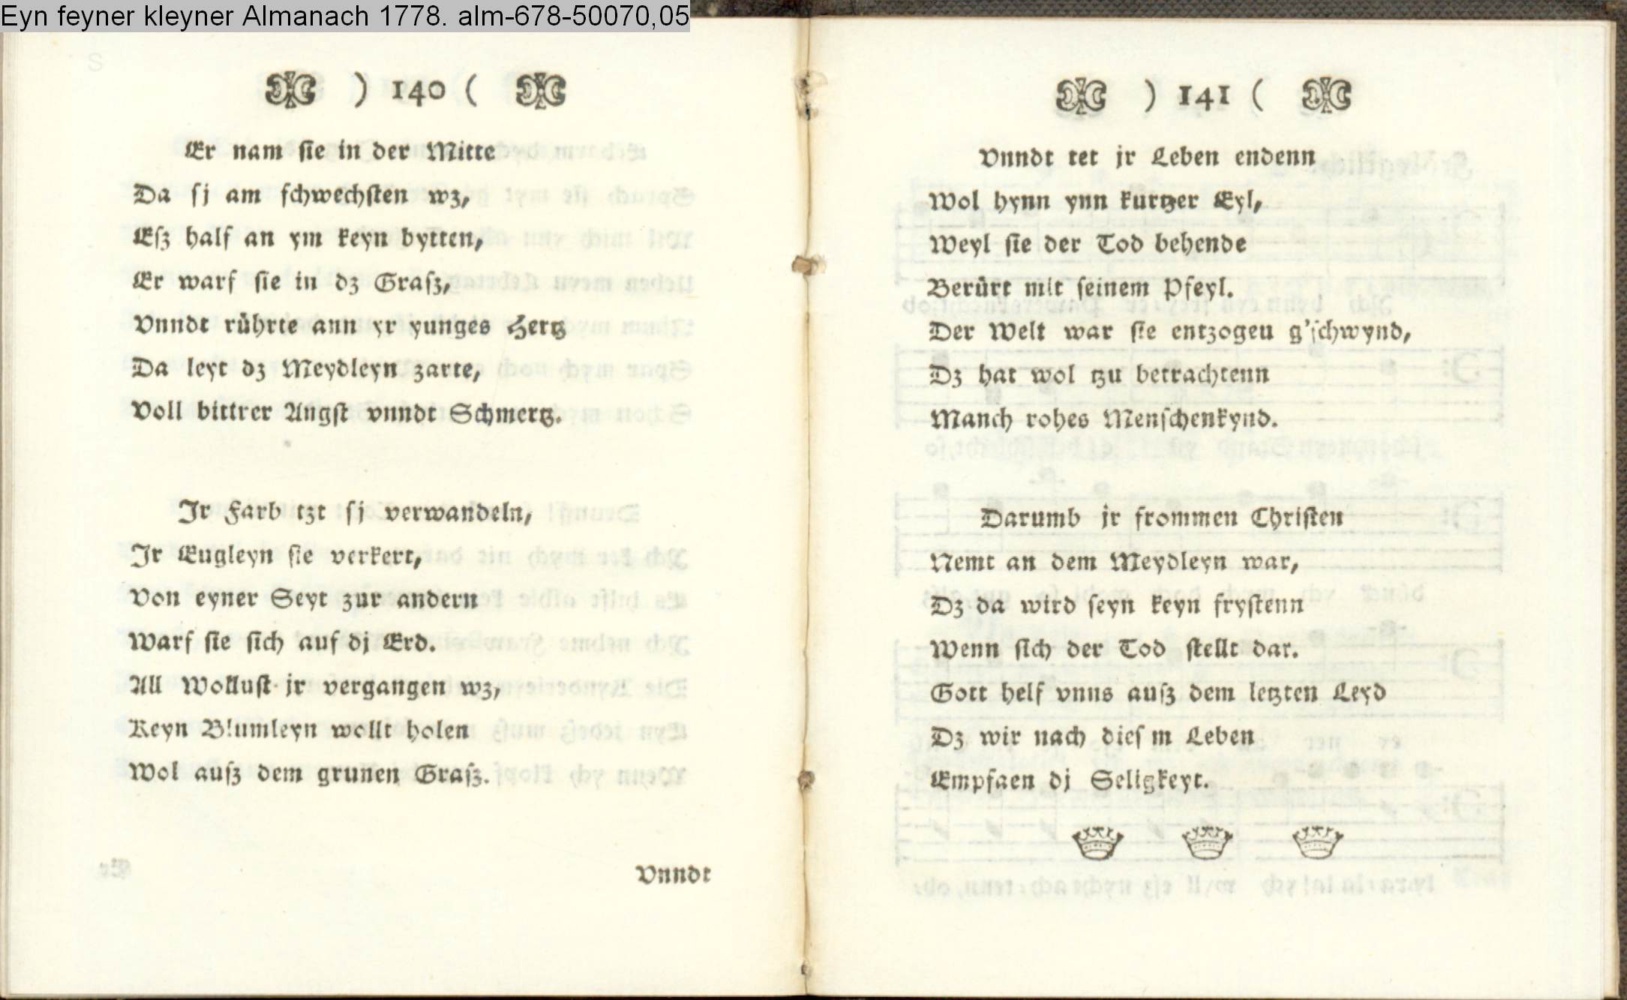 Eyn feyner kleyner Almanach 1778. alm-678-50070,05
) 140 (
Er nam sie in der Mitte
Da sj am schwechsten wz,
Esz half an ym keyn bytten,
Er warf sie in dz Grasz,
Vnndt rührte ann yr yunges Hertz
Da leyt dz Meydleyn zarte,
Voll bittrer Angst vnndt Schmertz.
Ir Farb tzt sj verwandeln,
Ir Eugleyn sie verkert,
Von eyner Seyt zur andern
Warf sie sich auf dj Erd.
All Wollust jr vergangen wz,
Keyn Blumleyn wollt holen
Wol ausz dem grunen Grasz.
Vnndt
) 141 (
Vnndt tet jr Leben endenn
Wol hynn ynn kurtzer Eyl,
Weyl sie der Tod behende
Berürt mit seinem Pfeyl.
Der Welt war sie entzogen g'schwynd,
Dz hat wol tzu betrachtenn
Manch rohes Menschenkynd.
Darumb jr frommen Christen
Nemt an dem Meydleyn war,
Dz da wird seyn keyn frystenn
Wenn sich der Tod stellt dar.
Gott helf vnns ausz dem letzten Leyd
Dz wir nach dies m Leben
Empfaen dj Seligkeyt.